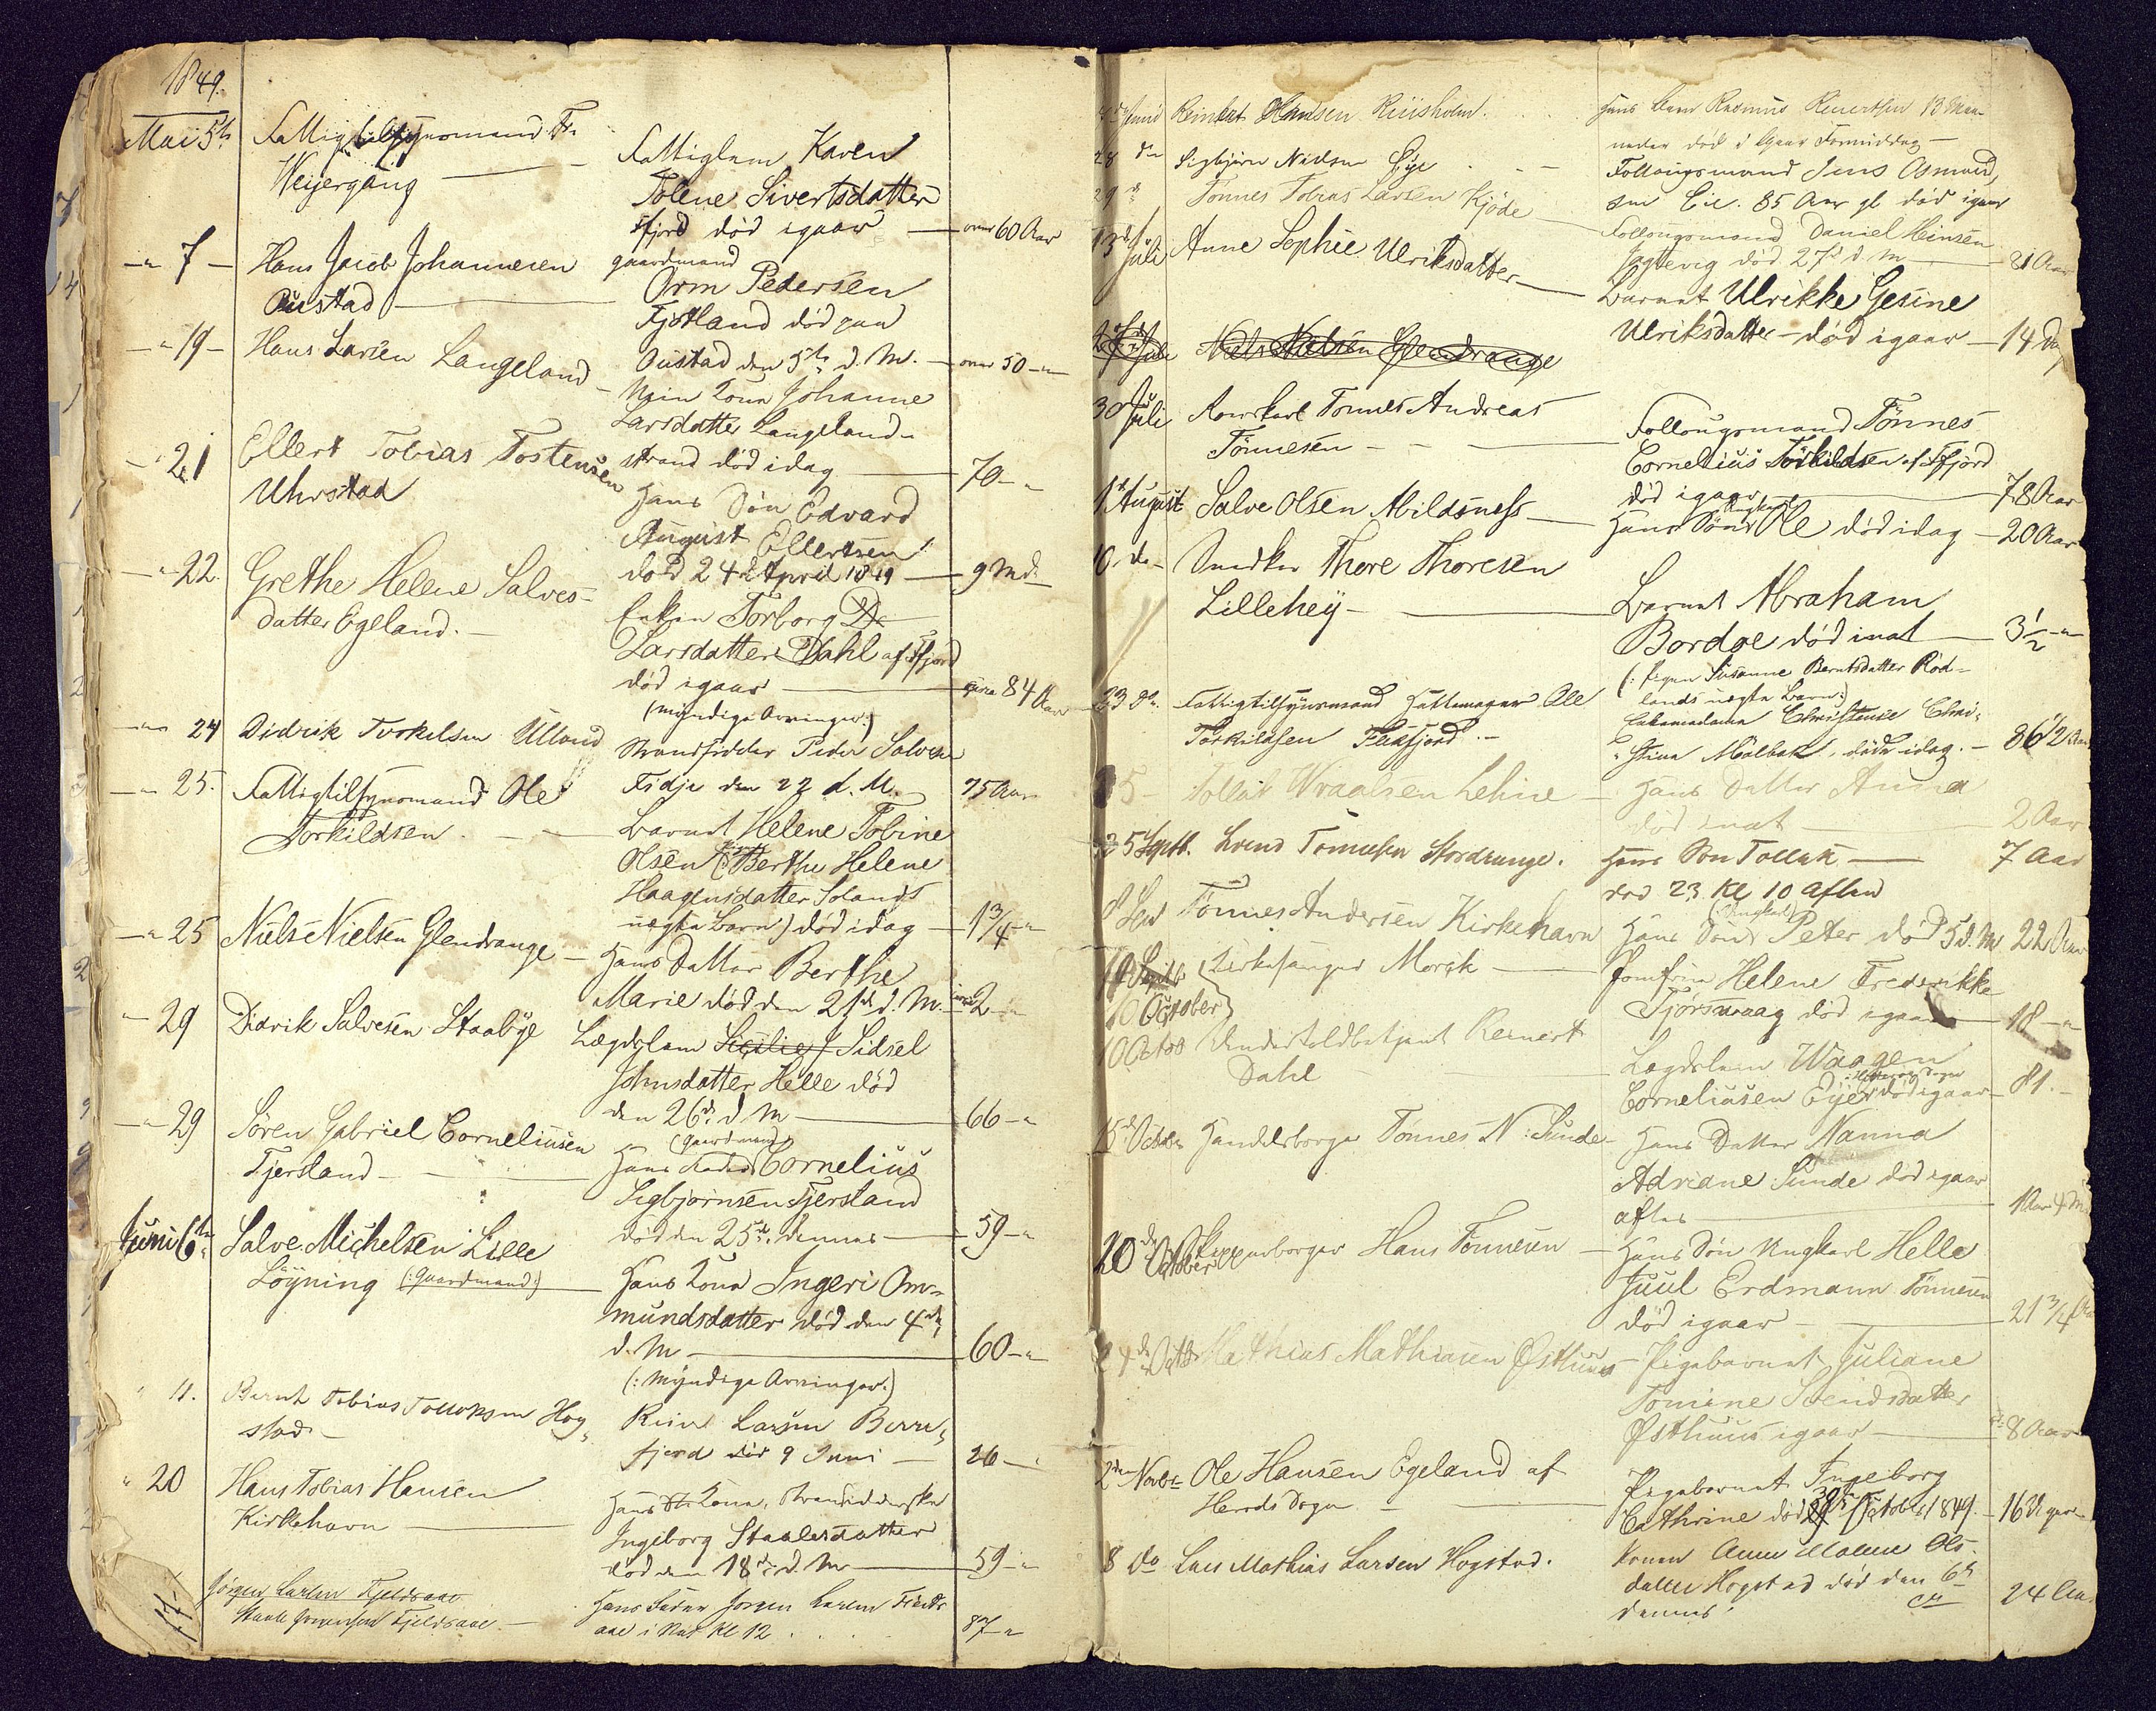 1849.
Mai 5te Fattigtilsynsmand Fr.
Weyergang
Fattiglem Karen
Tolene Sivertsdatter
Ffjord død igaar — over 60 Aar
" 7 — Hans Jacob Johannesen
Oustad
gaardmand
Orm Pedersen
Fjotland død paa
Oustad den 5te d. M. — over 50 - "
" 19 — Hans Larsen Langeland
Min Kone Johanne
Larsdatter Langeland-
strand død idag — 70 - "
" 21 Ellert Tobias Tostensen
Uhrstad
Hans Søn Edvard
August Ellertsen
død 24de April 1849 — 9 Md.
" 22. Grethe Helene Salves-
datter Egeland.
Enken Torborg
Larsdatter Dahl af Ffjord
død igaar — circa 84 Aar
(myndige Arvinger:)
" 24 Didrik Torkelsen Ulland
Strandsidder Peder Salvesen
Fidje den 22 d. M. 75 Aar
" 25. Fattigtilsynsmand Ole
Torkildsen.
Barnet Helene Tobine
Olsen (Berthe Helene
Haagensdatter Solands
uægte Barn) død idag — 1 3/4 - "
" 25 Niels Nielsen Glendrange —
Hans Datter Berthe
Marie død den 21de d. M. 2 - "
" 29 Didrik Salvesen Staabye
Lægdslem Sicilie / Sidsel
Johnsdatter Helle død
den 26de d M — 66 - "
" 29 Søren Gabriel Corneliusen
Tjersland
(Gaardmand)
Hans Fader Cornelius
Sigbjørnsen Tjersland
død den 25de dennes — 59 - "
Juni 6te Salve Michelsen Lille
Løyning (:Gaardmand:)
Hans Kone Ingeri Om-
mundsdatter død den 4de
d. M — 60 - "
(: Myndige Arvinger:)
" 11. Bernt Tobias Tollaksen Hog-
stad
Reier Larsen Birre-
fjord død 9 Juni — 26 -
" 20 Hans Tobias Hansen
Kirkehavn
Hans Kone, Strandsidderske
Ingeborg Staalesdatter
død den 18de d. M — 59 - "
Jørgen Larsen Fjeldsaae
Staale Jørgensen Fjeldsaae —
Hans Fader Jørgen Larsen Fjelds
aae i Nat Kl 12 . . 87 - "
17
Juni Reinert Hansen Riisholm.
Hans Barn Rasmus Reinertsen 13 Maa-
neder død i Gaar Formiddag —
28 do Sigbjørn Nielsen Eye
Follougsmand Jens Asmund-
sen Eie. 85 Aar gl død igaar
29 d Tønnes Tobias Larsen Kjøde
Follougsmand Daniel Heinsen
Jagtevig død 27de d. M — 81 Aar
13de Juli Anne Sophie Ulriksdatter
Barnet Ulrikke Gesine
Ulriksdatter — død igaar — 14 Dag
Juli Niels Nielsen Glendrange
30 Juli Tønnes Andreas
Tønnesen
Follougsmand Tønnes
Cornelius Torkildsen af Ffjord
død igaar — 78 Aar
1ste August Salve Olsen Abildsness
(Ungkarl)
Hans Søn Ole død idag — 20 Aar
10. do — Snedker Thore Thoresen
Lillehey —
Barnet Abraham
Bordoe død inat — 3 1/2 - "
(: Pigen Susanne Berntsdatter Rød-
lands uægte Barn:)
23 do. Fattigtilsynsmand Hattemager Ole
Torkildsen Flekkefjord. —
Enkemadame Christense Chri-
stine Mølbak, døde idag. — 86 1/2 Aar
25 — Tollak Wraalsen Lehne —
Hans Datter Anna
død inat — 2 Aar
25 Septb. Svend Tønnesen Stordrange.
Hans Søn Tollak — 7 Aar
død 23 Kl 10 Aften
8 Tønnes Andersen Kirkehavn
(Ungkarl)
Hans Søn Peter død 5 d. M 22 Aar
10 Septbr
10 October
Kirkesanger Morck
Jomfru Helene Frederikke
Tjørswaag død igaar — 18 - "
10 Octob Undertoldbetjent Reinert
Dahl
Lægdslem Waagen
Corneliusen Eye død igaar — 81. -
15de Octobr Handelsborger Tønnes N: Sunde —
Hans Datter Nanna
Adriane Sunde død igaar
aftes — 1 Aar 4 M
20de October Skipperborger Hans Tønnesen
Hans Søn Ungkarl Helle
Juul Erdmann Tønnesen
død igaar — 21 3/4 Aar
24de Octbr Mathias Mathiasen Østhuus
Pigebarnet Juliane
Tomine Svendsdatter
Østhuus igaar — 8 Aar
2den Novbr Ole Hansen Egeland af
Herreds Sogn —
Pigebarnet Ingeborg
Cathrine død 30te October 1849. — 16 Uger
8 do Lars Mathias Larsen Hogstad.
Konen Anne Malene Ols-
datter Hogstad død den 6te
dennes 24 Aar